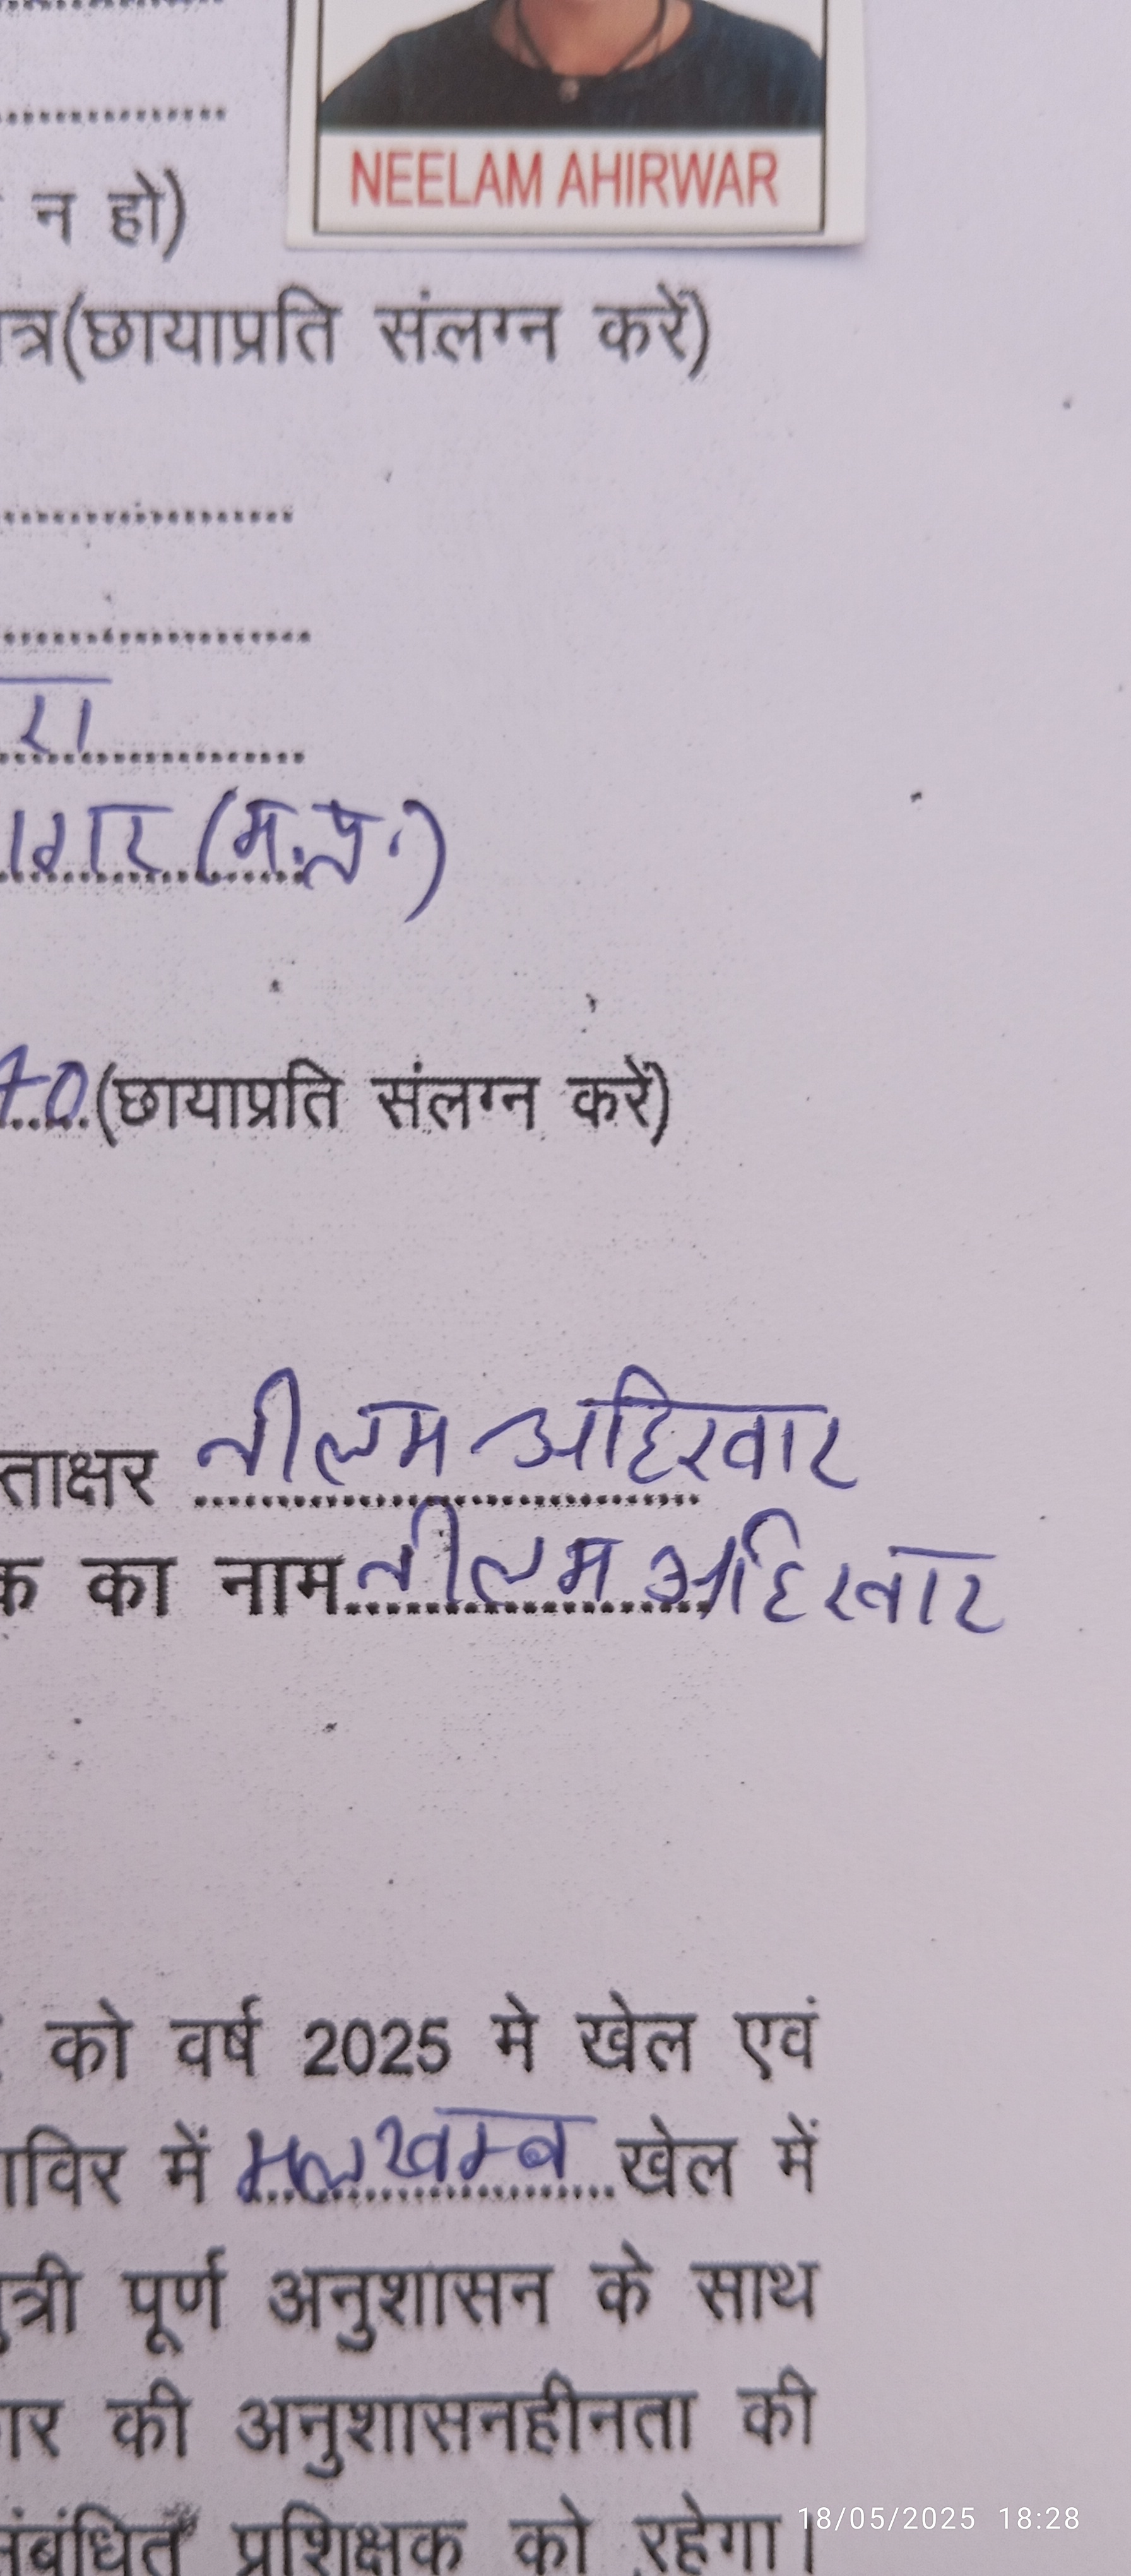 NEELAM AHIRWAR
न हो)
त्र(छायाप्रति संलग्न करें)
रा
ागर (म.प्र.)
70 (छायाप्रति संलग्न करें)
ताक्षर नीलम अहिरवार
क का नाम नीलम अहिरवार
को वर्ष 2025 मे खेल एवं
ाविर में मलखम्ब खेल में
त्री पूर्ण अनुशासन के साथ
ार की अनुशासनहीनता की
संबंधित प्रशिक्षक को रहेगा।
18/05/2025 18:28